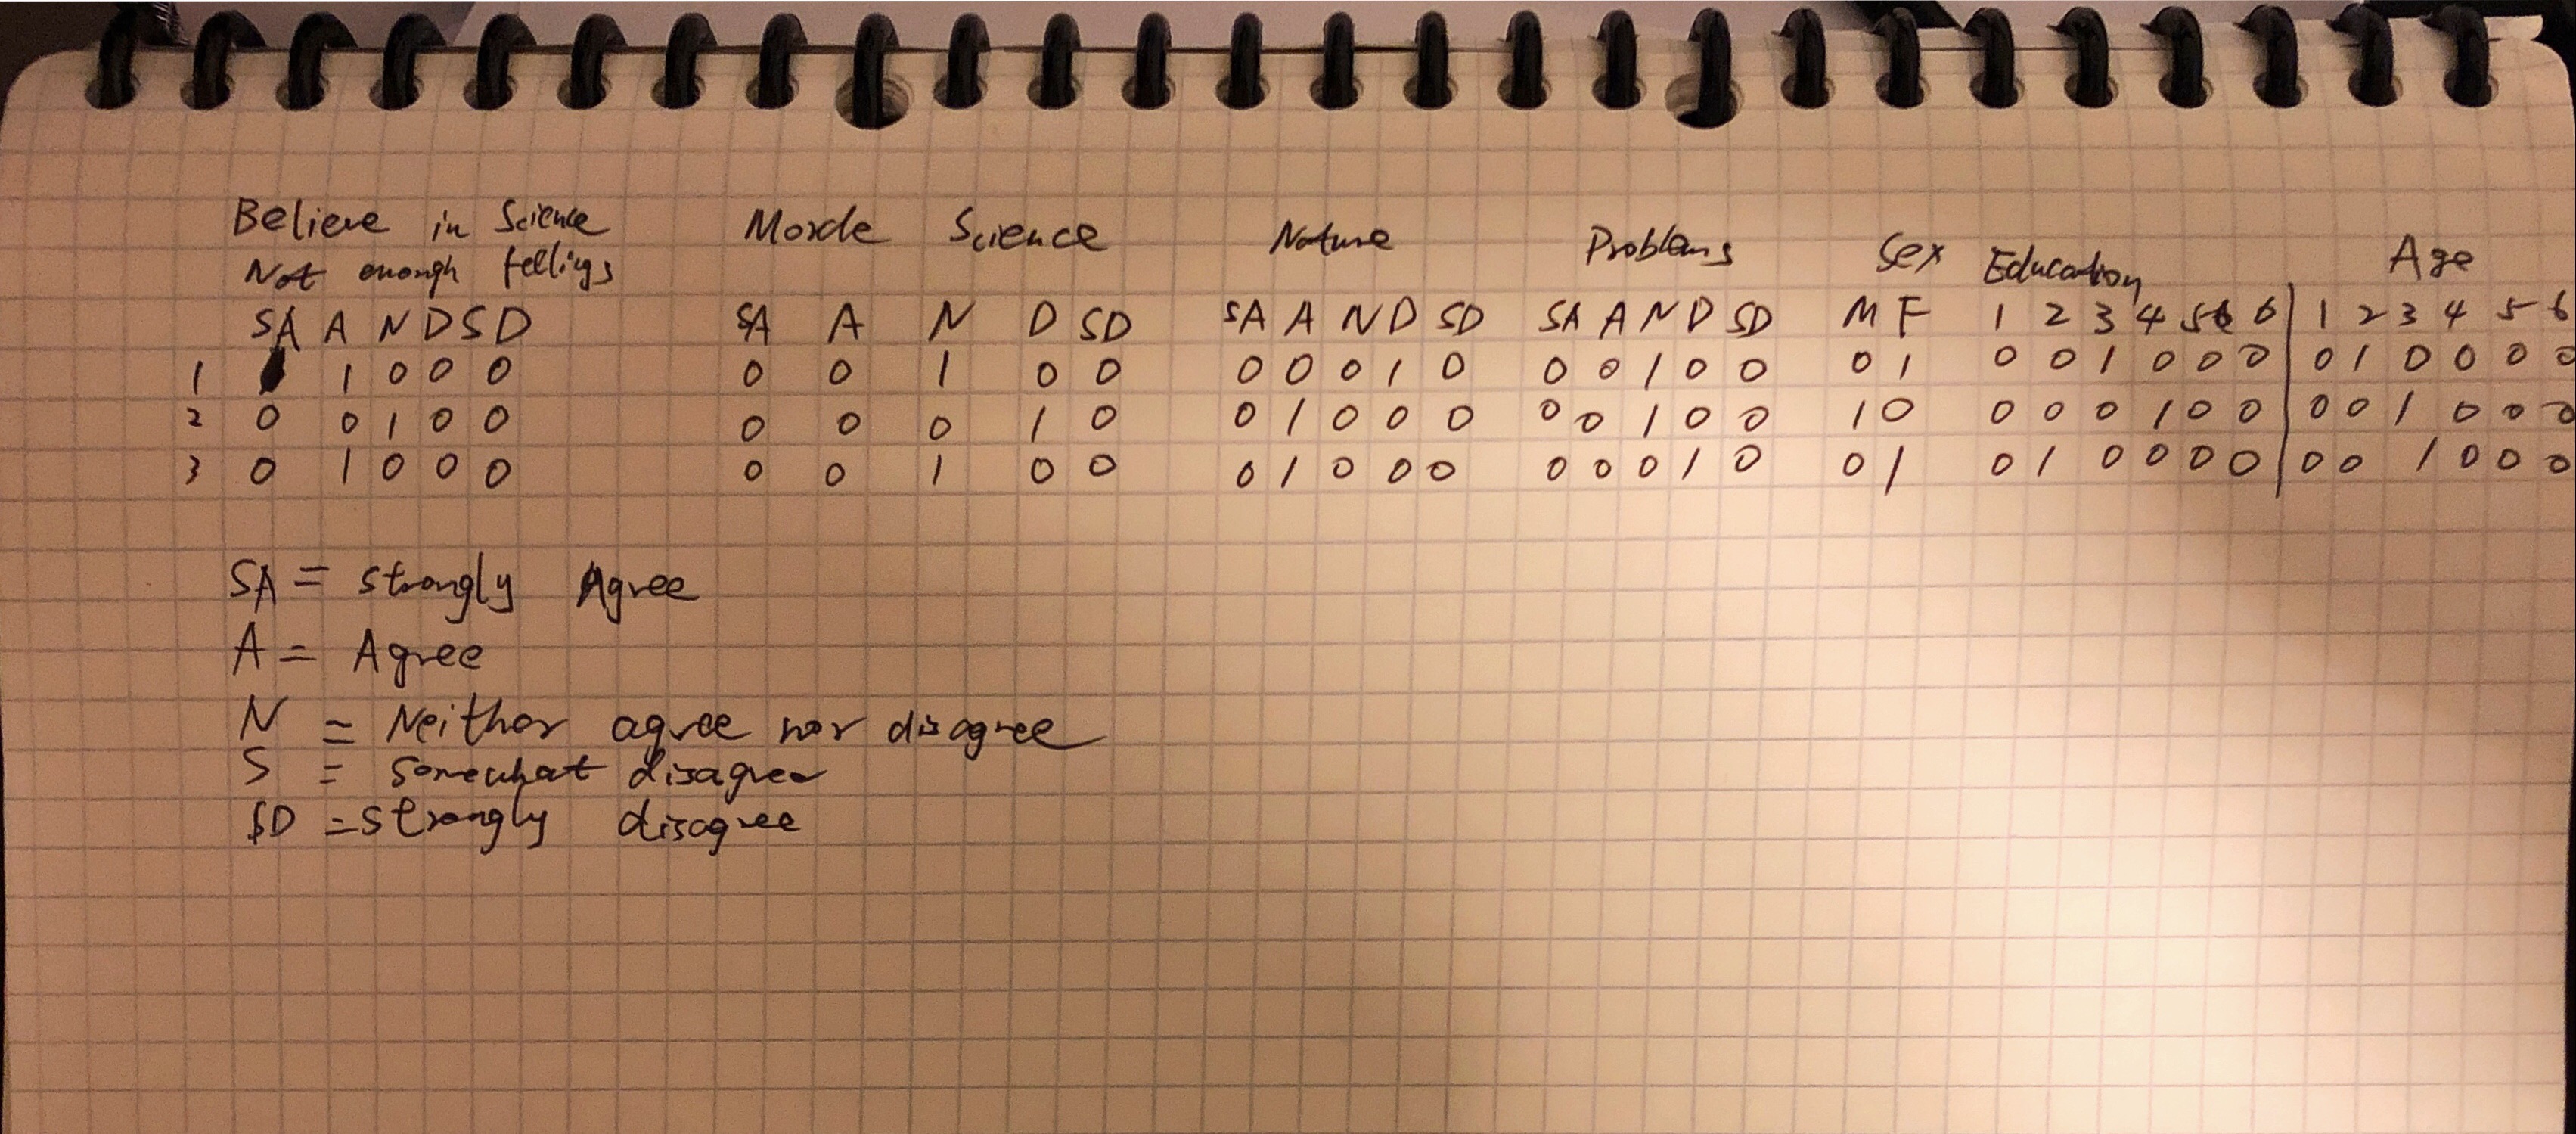 Believe in Science Morde Science Nature Problems Sex Education Age
Not enough fellings
SA A N D SD SA A N D SD SA A N D SD SA A N D SD M F 1 2 3 4 5 6 1 2 3 4 5 6
1 1 0 0 0 0 0 1 0 0 0 0 0 1 0 0 0 1 0 0 0 1 0 0 1 0 0 0 0 1 0 0 0 0
2 0 0 1 0 0 0 0 0 1 0 0 1 0 0 0 0 0 1 0 0 1 0 0 0 0 1 0 0 0 0 1 0 0 0
3 0 1 0 0 0 0 0 1 0 0 0 1 0 0 0 0 0 0 1 0 0 1 0 1 0 0 0 0 0 0 1 0 0 0
SA = strongly Agree
A = Agree
N = Neither agree nor disagree
S = Somewhat disagree
SD = strongly disagree